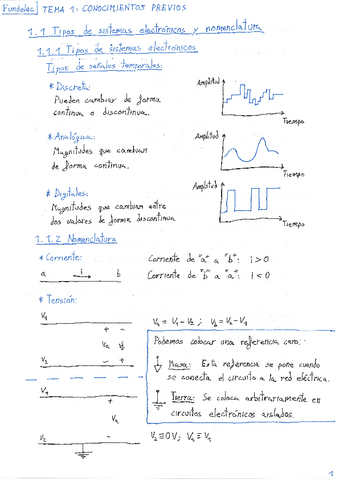 Fundelec TEMA 1: CONOCIMIENTOS PREVIOS
1.1 Tipos de sistemas electrónicos y nomenclatura
1.1.1 Tipos de sistemas electrónicos
Tipos de señales temporales:
* Discreta:
Pueden cambiar de forma
continua o discontinua.
Amplitud
Tiempo
* Analógica:
Magnitudes que cambian
de forma continua.
Amplitud
Tiempo
* Digitales:
Magnitudes que cambian entre
dos valores de forma discontinua
Amplitud
Tiempo
1.1.2 Nomenclatura
* Corriente:
a i b
Corriente de "a" a "b": i > 0
Corriente de "b" a "a": i < 0
* Tensión:
V1
+ -
Va Vb
V2 - +
Va = V1 - V2 ; Vb = V2 - V1
Podemos colocar una referencia como:
Masa: Esta referencia se pone cuando
se conecta el circuito a la red eléctrica.
Tierra: Se coloca arbitrariamente en
circuitos electrónicos aislados.
V1
+
Va
V2 -
V2 ≡ 0V; Va ≡ V1
1